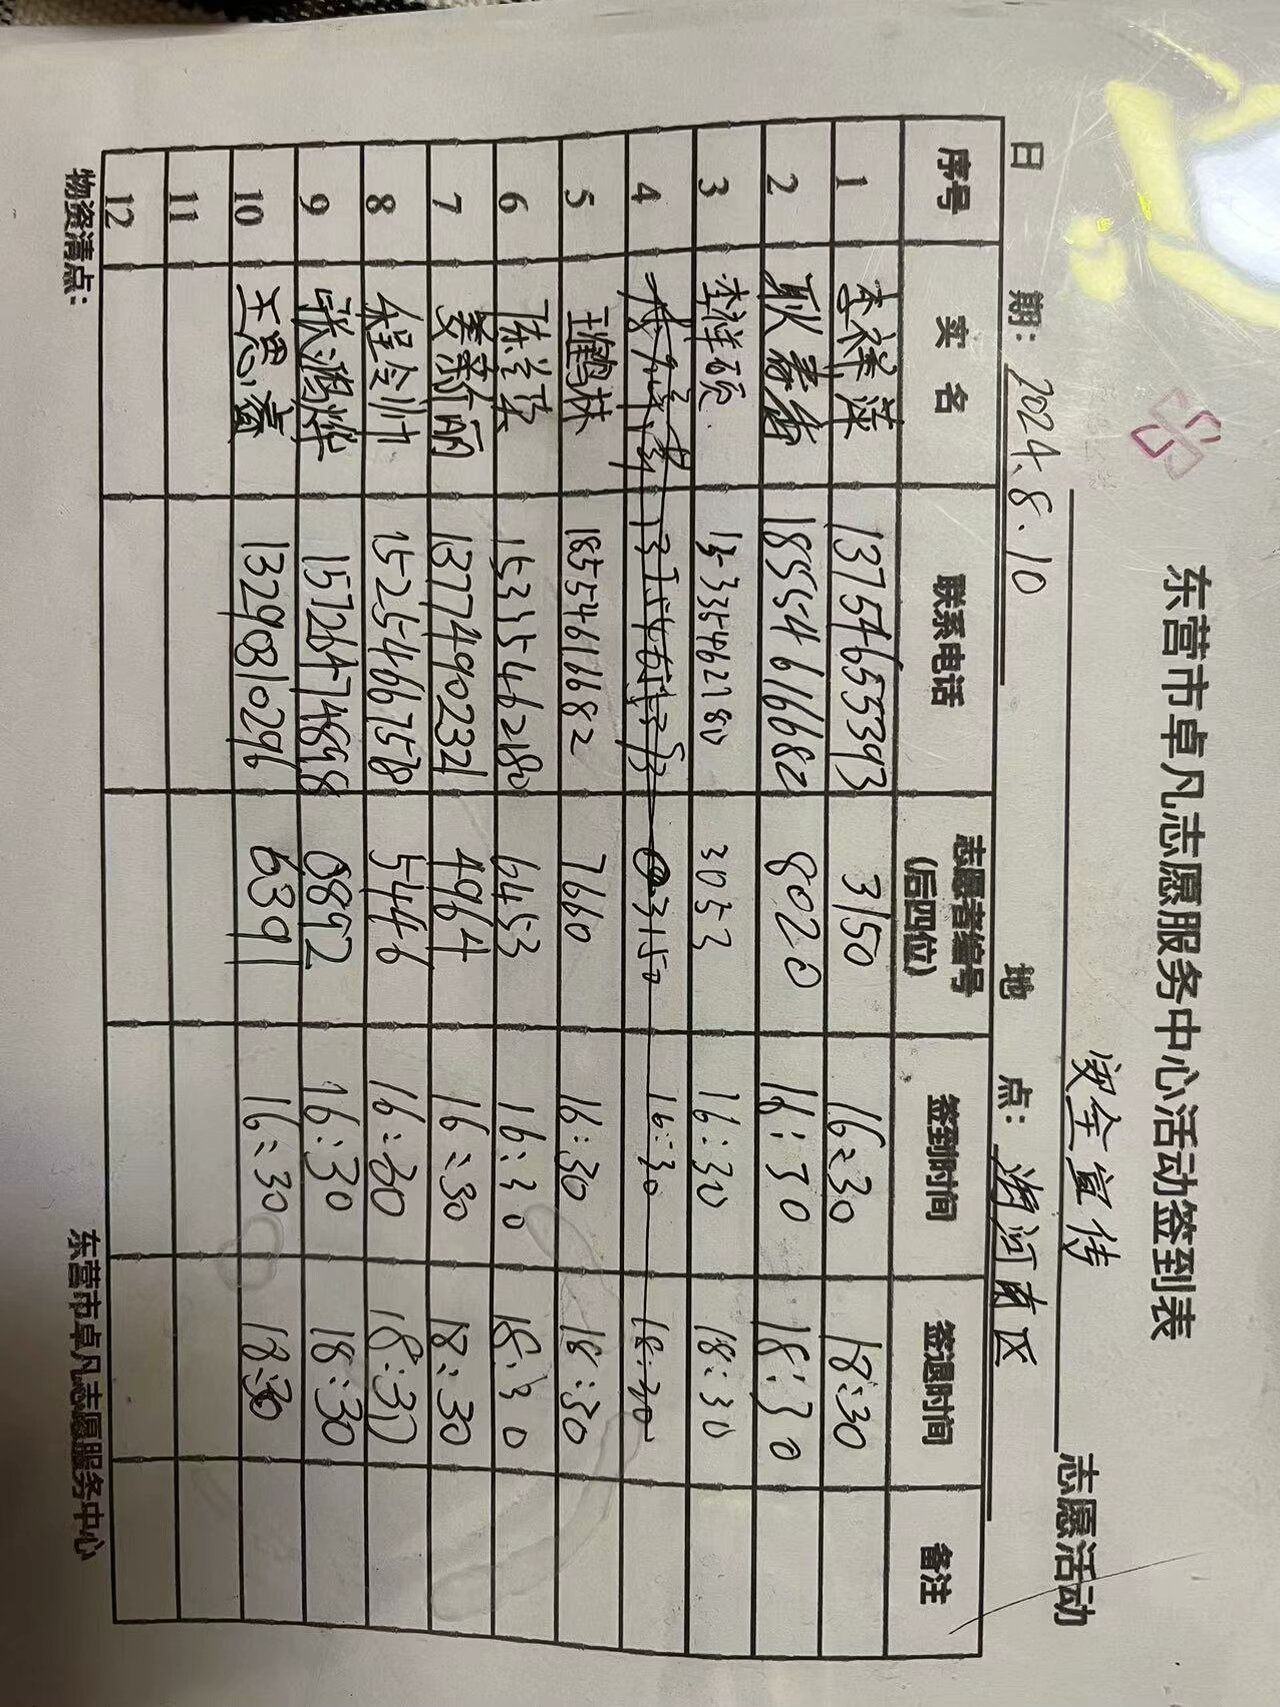 东营市卓凡志愿服务中心活动签到表
安全宣传 志愿活动
日 期: 2024.8.10 地 点: 湖河南区
序号 实 名 联系电话 志愿者编号(后四位) 签到时间 签退时间 备注
1 李祥泽 13754655393 3150 16:30 18:30
2 耿春香 18554616682 8020 16:30 18:30
3 李祥硕 15335462180 3053 16:30 18:30
4 3150 16:30 18:30
5 王鹤林 18554616682 7660 16:30 18:30
6 陈兰芬 15335462180 6453 16:30 18:30
7 綦新丽 1377490232 4964 16:30 18:30
8 程令帅 15254667578 5446 16:30 18:30
9 张鸿烨 15726474898 0892 16:30 18:30
10 王思睿 13290810296 6391 16:30 18:30
11
12
物资清点: 东营市卓凡志愿服务中心